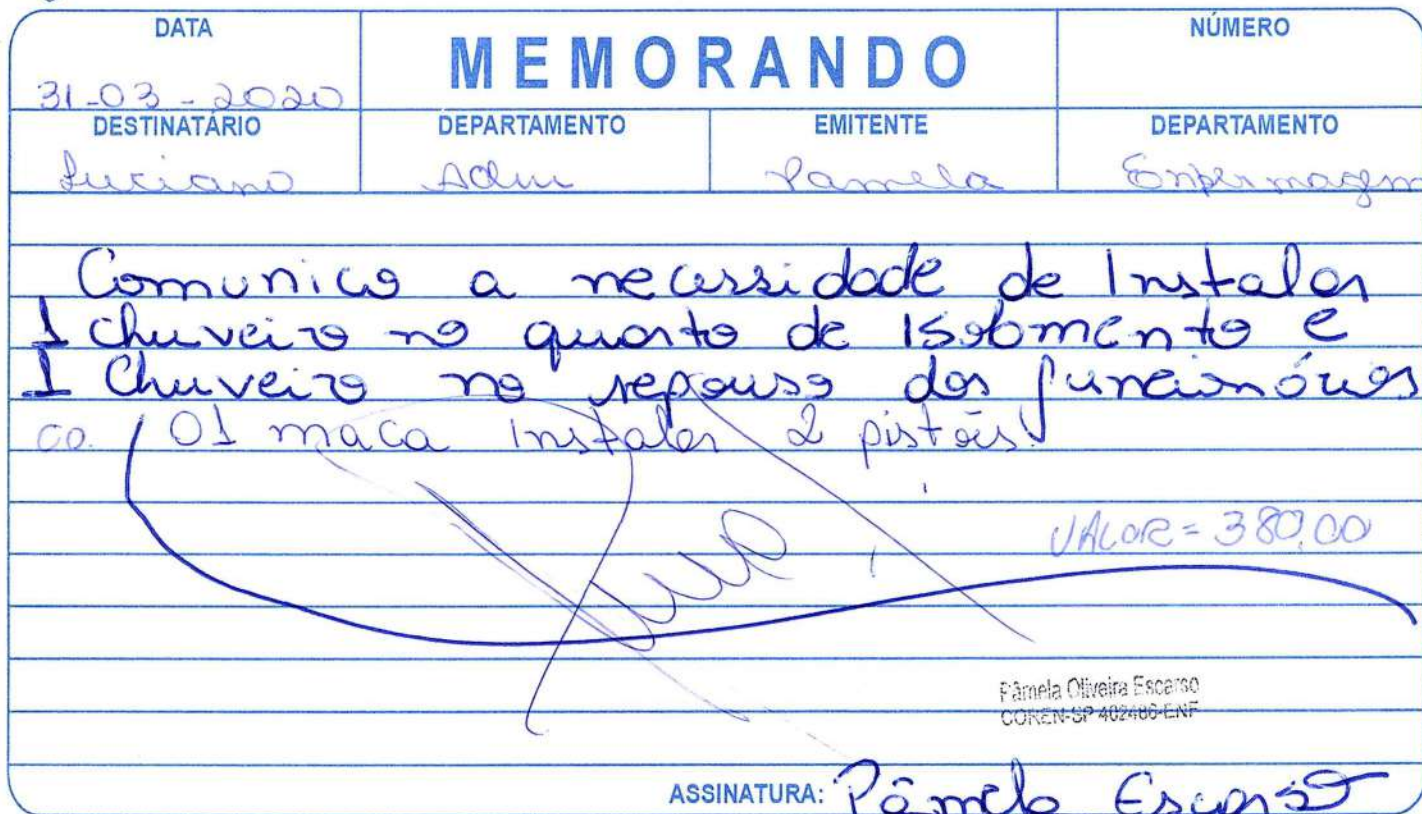 DATA
MEMORANDO
NÚMERO
31-03-2020
DESTINATÁRIO DEPARTAMENTO EMITENTE DEPARTAMENTO
Luciano Adm Pamela Enfermagem
Comunico a necessidade de Instalar
1 chuveiro no quarto de Isolamento e
1 Chuveiro no repouso dos funcionários
01 maca Instalar 2 pistões
VALOR = 380,00
Pâmela Oliveira Escarso
COREN-SP 402486-ENF
ASSINATURA: Pâmela Escarso